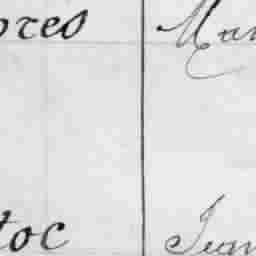 ores Man
toc Jean